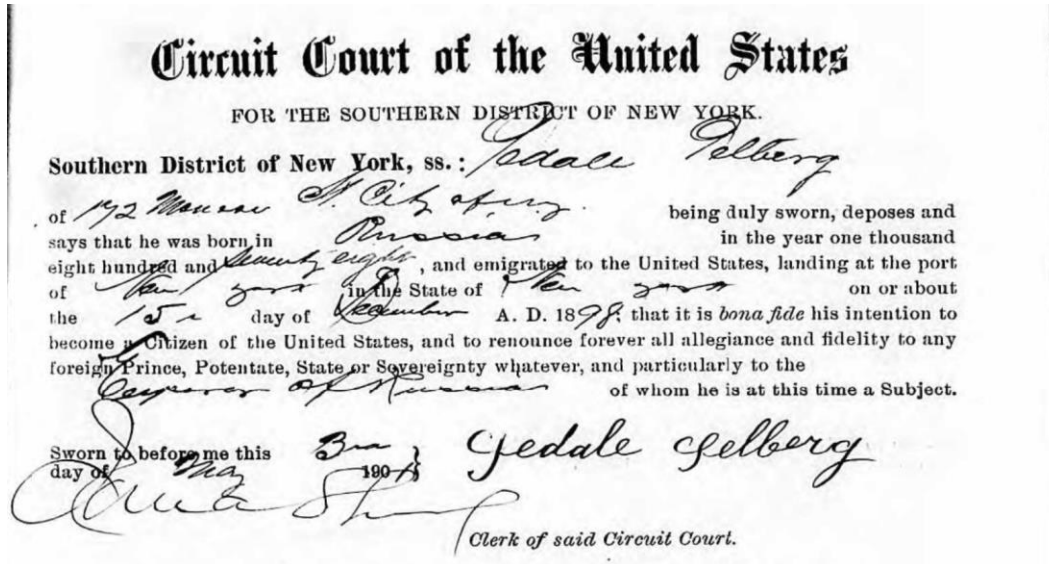 Circuit Court of the United States
FOR THE SOUTHERN DISTRICT OF NEW YORK.
Southern District of New York, ss.: Gedale Gelberg
of 172 Monroe St City of N.Y. being duly sworn, deposes and
says that he was born in Russia in the year one thousand
eight hundred and seventy eight, and emigrated to the United States, landing at the port
of New York in the State of New York on or about
the 15 day of December A. D. 1898; that it is bona fide his intention to
become a Citizen of the United States, and to renounce forever all allegiance and fidelity to any
foreign Prince, Potentate, State or Sovereignty whatever, and particularly to the
Emperor of Russia of whom he is at this time a Subject.
Sworn to before me this 3rd Gedale Gelberg
day of May 190
Clerk of said Circuit Court.